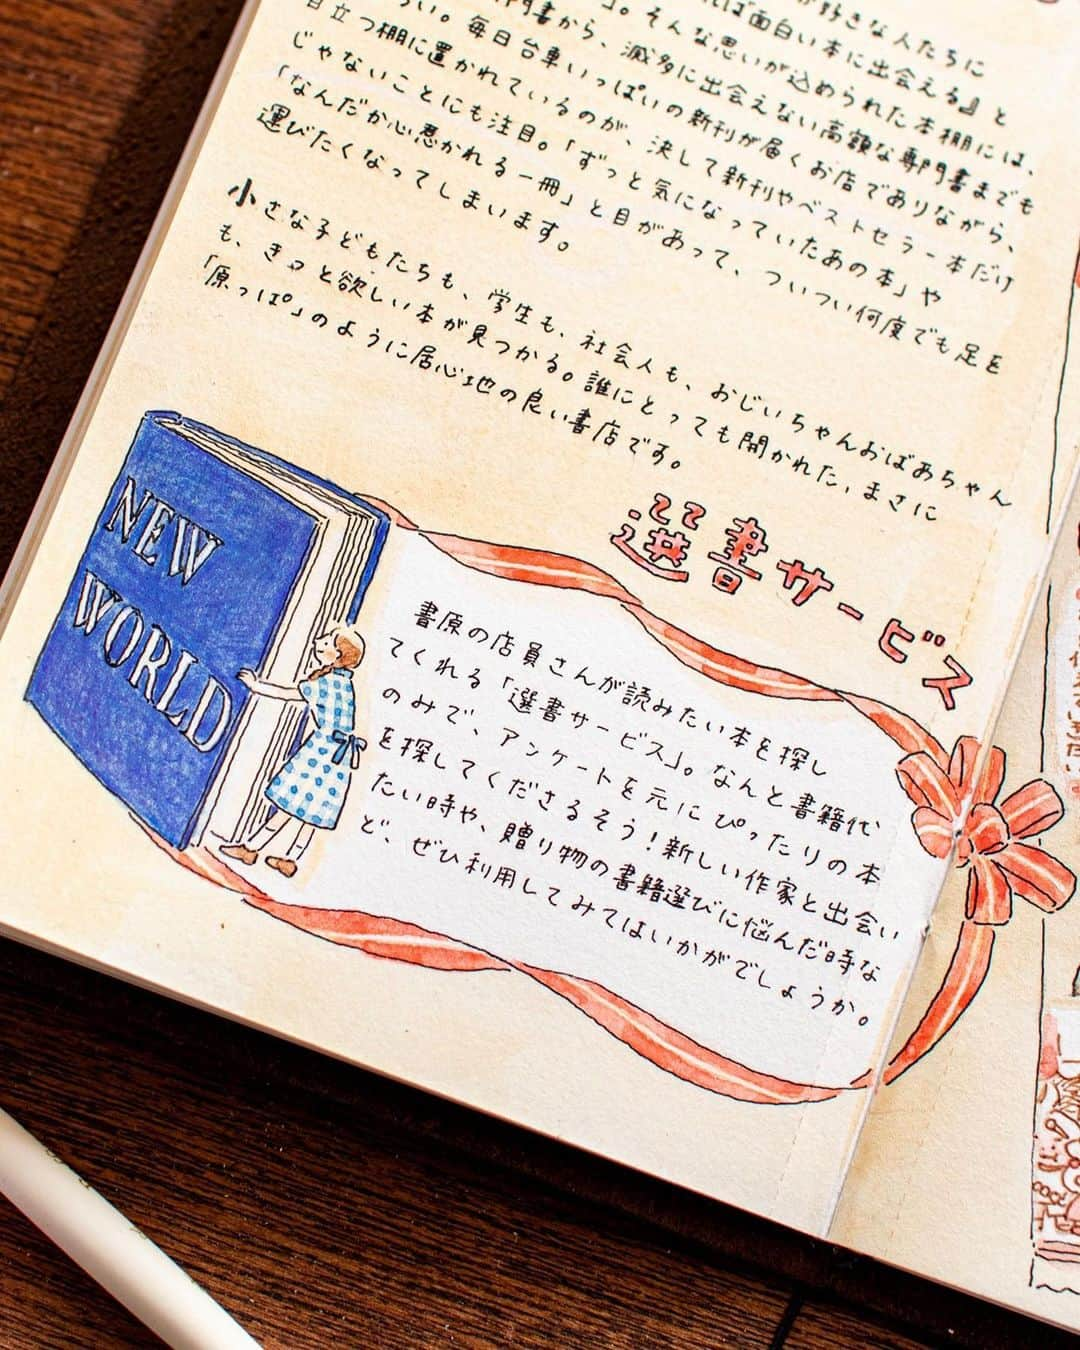 が好きな人たちに
ば面白い本に出会える』と
。そんな思いが込められた本棚には、
門書から、滅多に出会えない高額な専門書までも
い。毎日台車いっぱいの新刊が届くお店でありながら、
目立つ棚に置かれているのが、決して新刊やベストセラー本だけ
じゃないことにも注目。「ずっと気になっていたあの本」や
「なんだか心惹かれる一冊」と目があって、ついつい何度でも足を
運びたくなってしまいます。
小さな子どもたちも、学生も、社会人も、おじいちゃんおばあちゃん
も、きっと欲しい本が見つかる。誰にとっても開かれた、まさに
「原っぱ」のように居心地の良い書店です。
選書サービス
NEW
WORLD
書原の店員さんが読みたい本を探し
てくれる「選書サービス」。なんと書籍代
のみで、アンケートを元にぴったりの本
を探してくださるそう！新しい作家と出会い
たい時や、贈り物の書籍選びに悩んだ時な
ど、ぜひ利用してみてはいかがでしょうか。